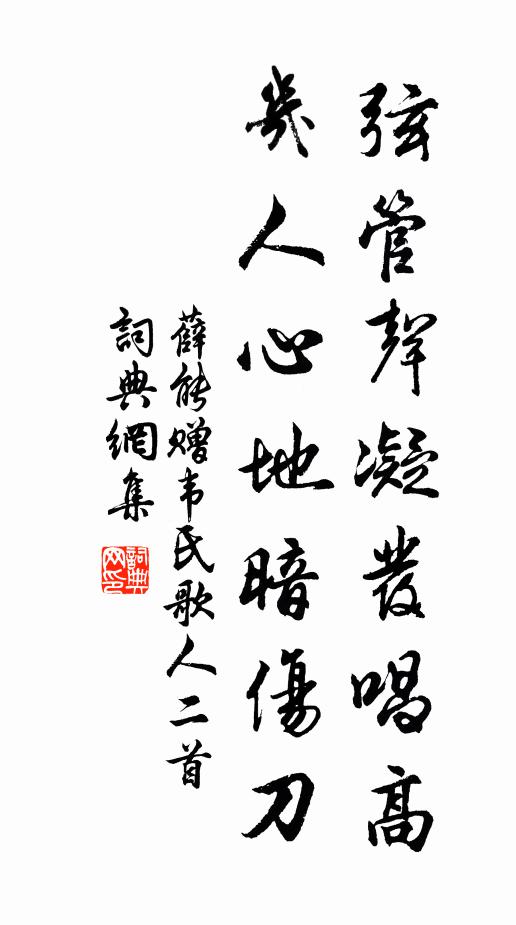 弦管聲凝發唱高
幾人心地暗傷刀
薛能赠韦氏歌人二首
詞典網集
詞典网印